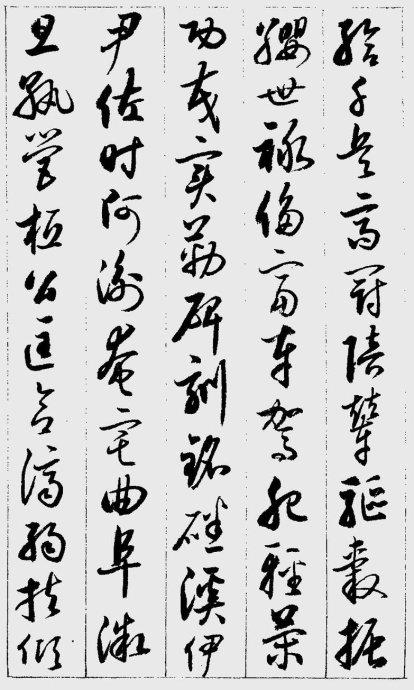 給千兵高冠陪輦驅轂振
纓世祿侈富車駕肥輕策
功茂實勒碑刻銘磻溪伊
尹佐時阿衡奄宅曲阜微
旦孰營桓公匡合濟弱扶傾